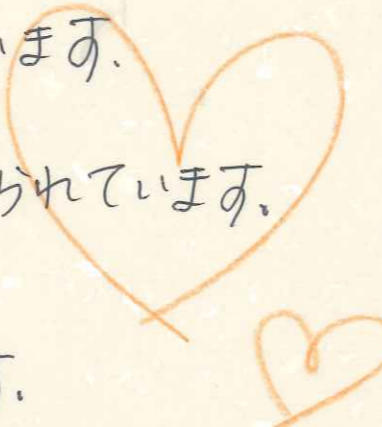 います.
られています.
す.